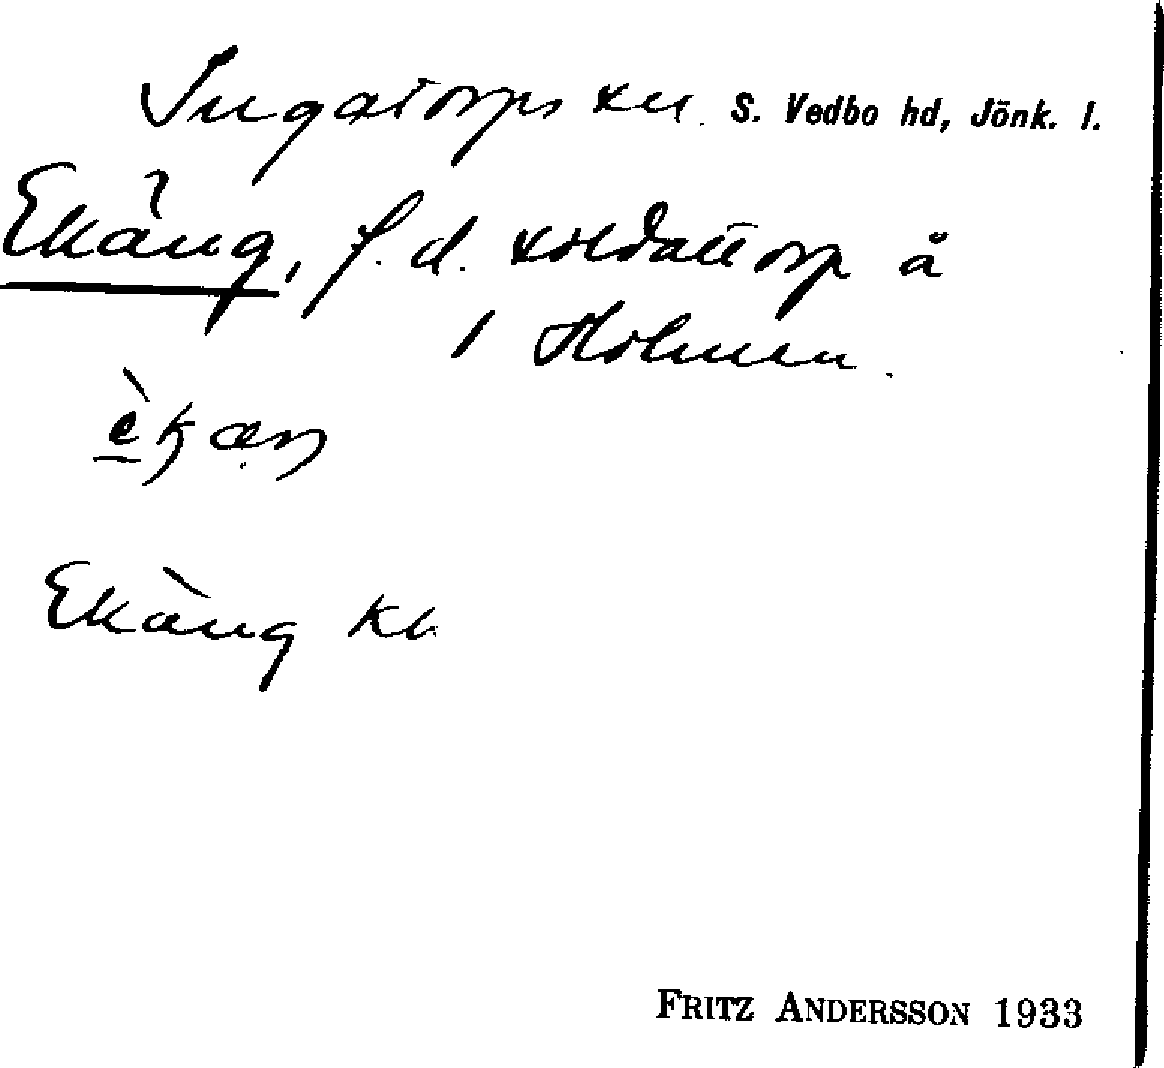 Ingatorps sn. S. Vedbo hd, Jönk. l.
Ekäng, f. d. soldattorp å
1 Holmen.
Ekäng kb
FRITZ ANDERSSON 1933